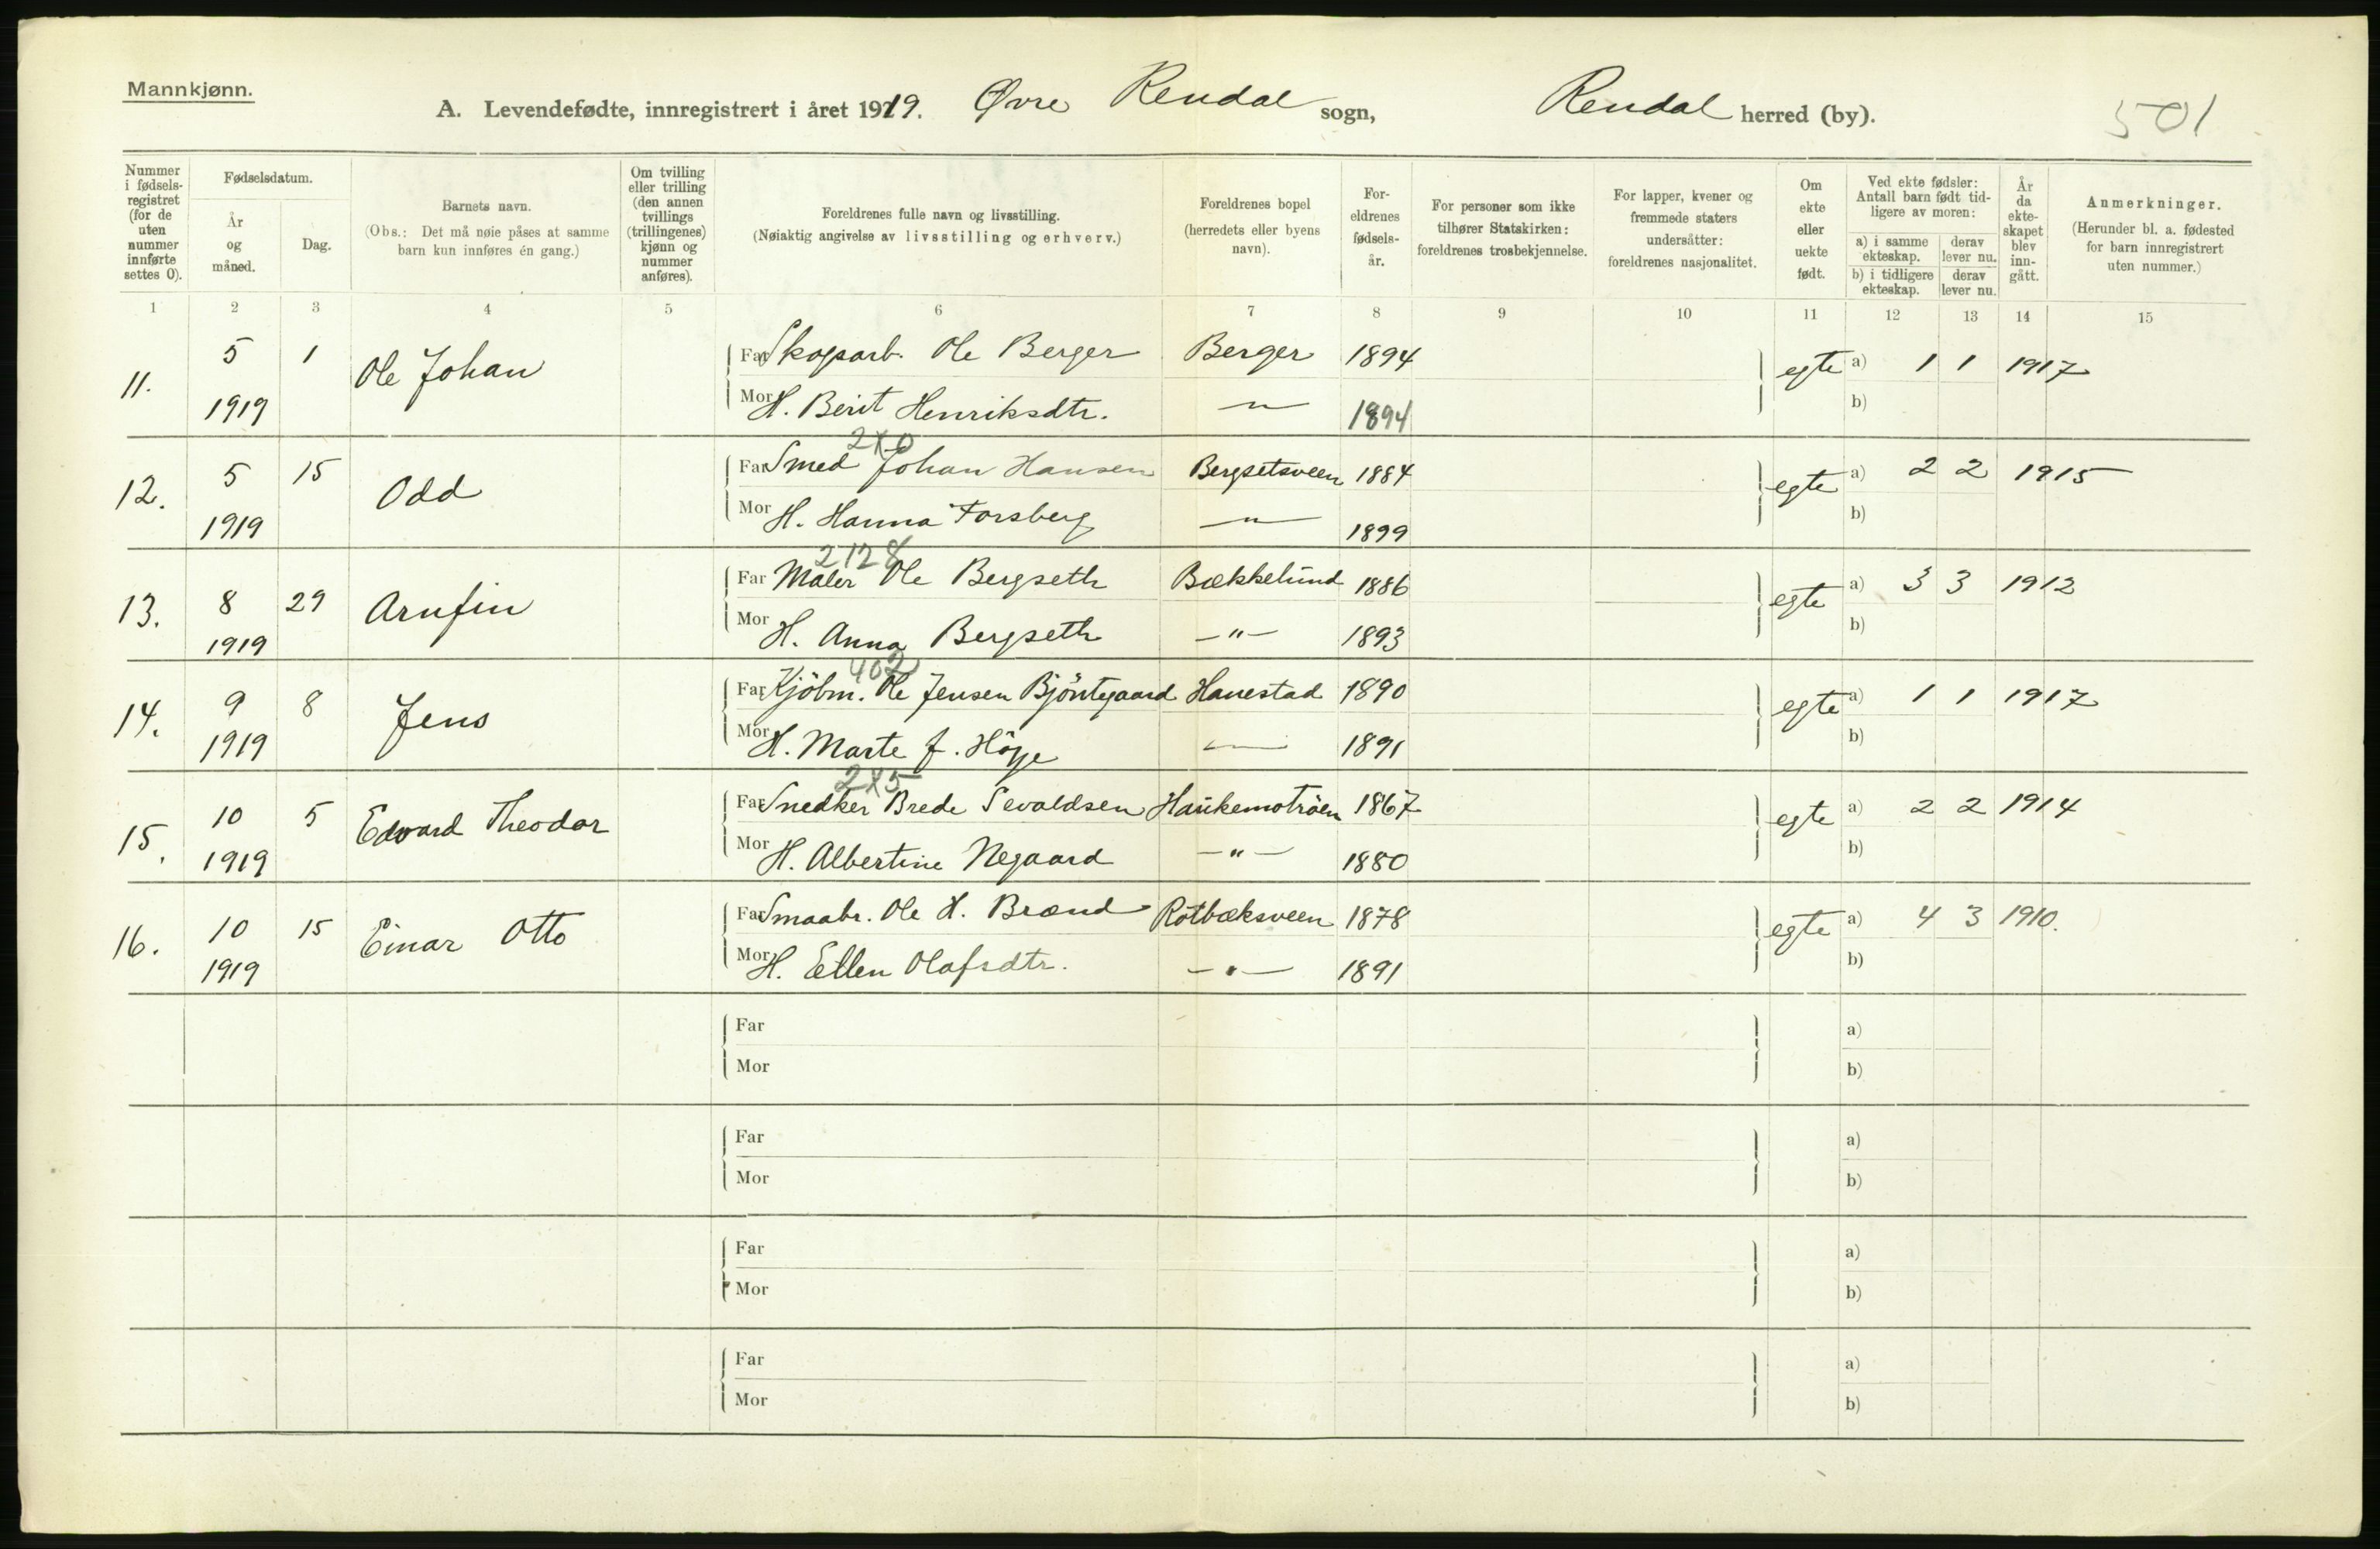 Mannkjønn.
A. Levendefødte, innregistrert i året 1919. Øvre Rendal sogn, Rendal herred (by). 501
Nummer i fødsels-registret (for de uten nummer innførte settes 0).
Fødselsdatum.
År og måned.
Dag.
Barnets navn.
(Obs.: Det må nøie påses at samme barn kun innføres én gang.)
Om tvilling eller trilling (den annen tvillings (trillingenes) kjønn og nummer anføres).
Foreldrenes fulle navn og livsstilling.
(Nøiaktig angivelse av livsstilling og erhverv.)
Foreldrenes bopel (herredets eller byens navn).
For-eldrenes fødsels-år.
For personer som ikke tilhører Statskirken: foreldrenes trosbekjennelse.
For lapper, kvener og fremmede staters undersåtter: foreldrenes nasjonalitet.
Om ekte eller uekte født.
Ved ekte fødsler: Antall barn født tid-ligere av moren:
a) i samme ekteskap.
derav lever nu.
b) i tidligere ekteskap.
derav lever nu.
År da ekte-skapet blev inn-gått.
Anmerkninger.
(Herunder bl. a. fødested for barn innregistrert uten nummer.)
1 2 3 4 5 6 7 8 9 10 11 12 13 14 15
11. 5 1 Ole Johan Far Skogsarb. Ole Berger Berger 1894 egte a) 1 1 1917
1919 Mor H. Berit Henriksdtr. — " — 1894 b)
2X0
12. 5 15 Odd Far Smed Johan Hansen Bergsetsveen 1884 egte a) 2 2 1915
1919 Mor H. Hanna Forsberg — " — 1899 b)
2128
13. 8 29 Arnfin Far Maler Ole Bergseth Bækkelund 1886 egte a) 3 3 1912
1919 Mor H. Anna Bergseth — " — 1893 b)
402
14. 9 8 Jens Far Kjöbm. Ole Jensen Bjöntegaard Hanestad 1890 egte a) 1 1 1917
1919 Mor H. Marte f. Höye — " — 1891 b)
2X5
15. 10 5 Edvard Theodor Far Snedker Brede Sevaldsen Haukemotröen 1867 egte a) 2 2 1914
1919 Mor H. Albertine Negaard — " — 1880 b)
16. 10 15 Einar Otto Far Smaabr. Ole H. Brænd Rotbæksveen 1878 egte a) 4 3 1910.
1919 Mor H. Ellen Olafsdtr. — " — 1891 b)
Far a)
Mor b)
Far a)
Mor b)
Far a)
Mor b)
Far a)
Mor b)